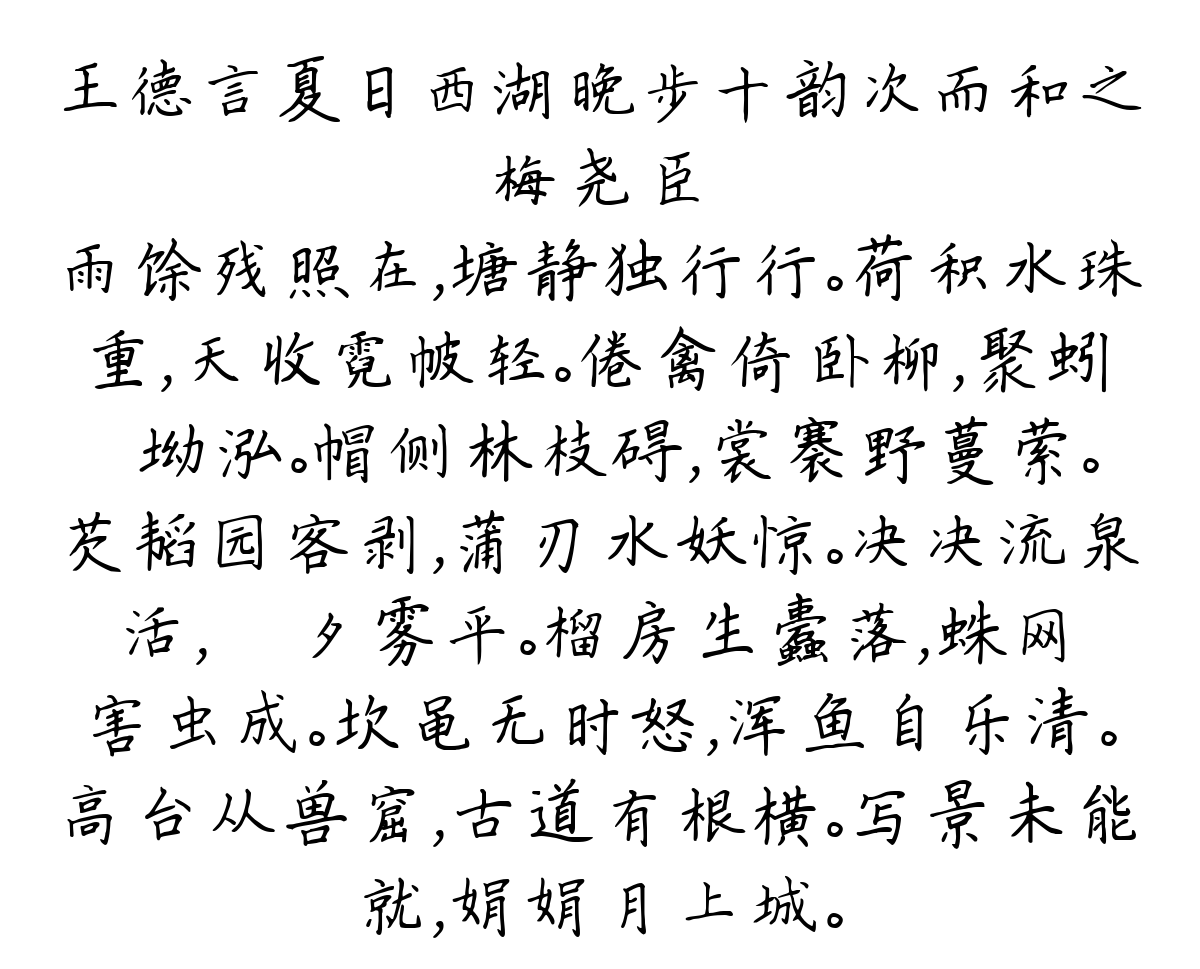 王德言夏日西湖晚步十韵次而和之
梅尧臣
雨馀残照在,塘静独行行。荷积水珠
重,天收霓帔轻。倦禽倚卧柳,聚蚓
坳泓。帽侧林枝碍,裳褰野蔓萦。
芡韬园客剥,蒲刃水妖惊。决决流泉
活, 夕雾平。榴房生蠹落,蛛网
害虫成。坎黾无时怒,浑鱼自乐清。
高台从兽窟,古道有根横。写景未能
就,娟娟月上城。